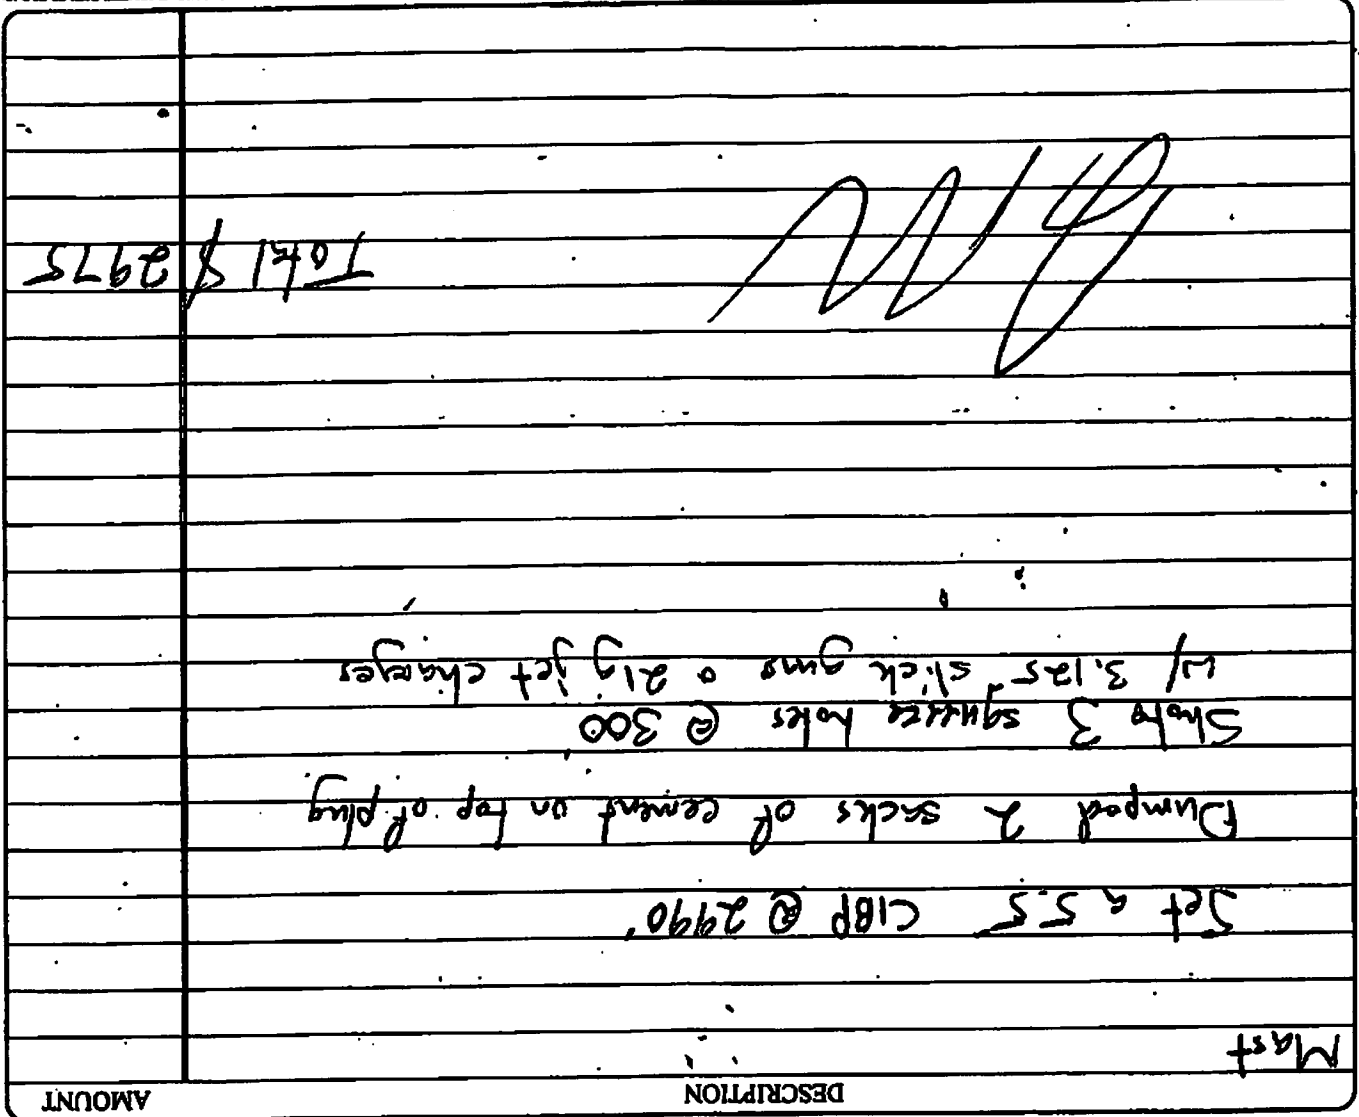 DESCRIPTION AMOUNT
Mast
Set a 5.5" CIBP @ 2990'
Dumped 2 sacks of cement on top of plug
Shots 3 squeeze holes @ 300'
w/ 3.125" slick guns 21g jet charges
Total $ 2975